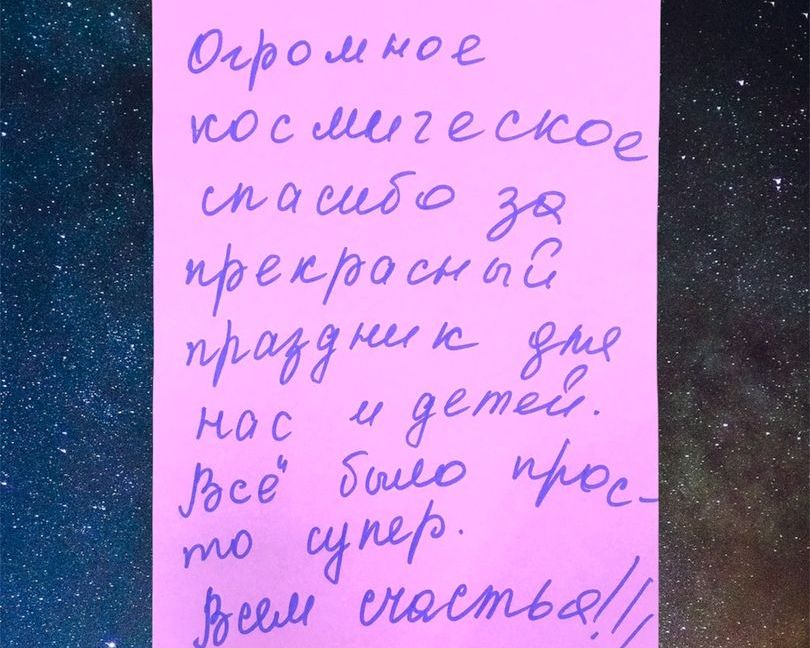 Огромное
космическое
спасибо за
прекрасный
праздник для
нас и детей.
Всё было прос-
то супер.
Всем счастья!!!